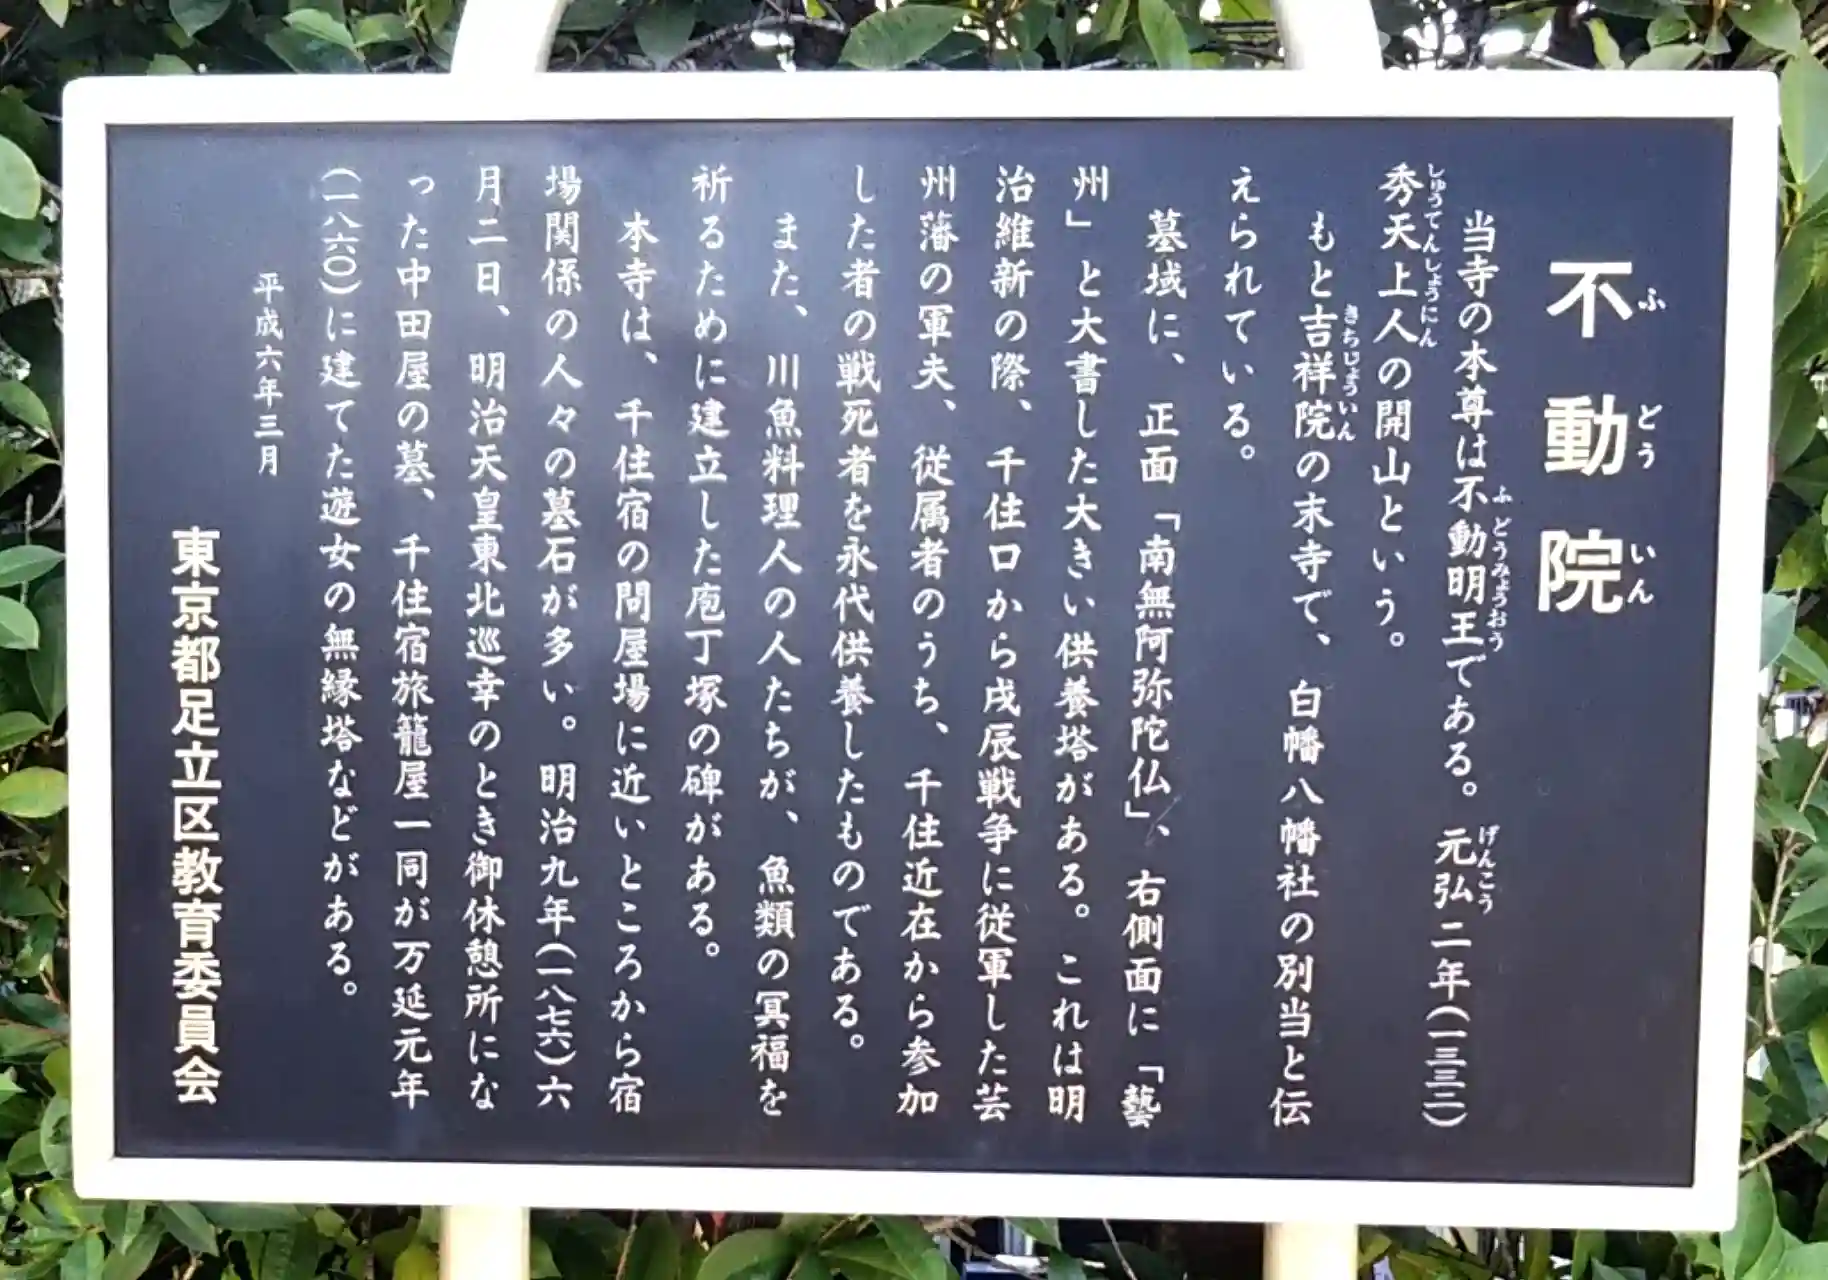 不動院
ふどういん
当寺の本尊は不動明王である。元弘二年(一三三二)
ふどうみょうおう
げんこう
秀天上人の開山という。
しゅうてんしょうにん
もと吉祥院の末寺で、白幡八幡社の別当と伝
きちじょういん
えられている。
墓域に、正面「南無阿弥陀仏」、右側面に「藝
州」と大書した大きい供養塔がある。これは明
治維新の際、千住口から戌辰戦争に従軍した芸
州藩の軍夫、従属者のうち、千住近在から参加
した者の戦死者を永代供養したものである。
また、川魚料理人の人たちが、魚類の冥福を
祈るために建立した庖丁塚の碑がある。
本寺は、千住宿の問屋場に近いところから宿
場関係の人々の墓石が多い。明治九年(一八七六)六
月二日、明治天皇東北巡幸のとき御休憩所にな
った中田屋の墓、千住宿旅籠屋一同が万延元年
(一八六〇)に建てた遊女の無縁塔などがある。
平成六年三月
東京都足立区教育委員会